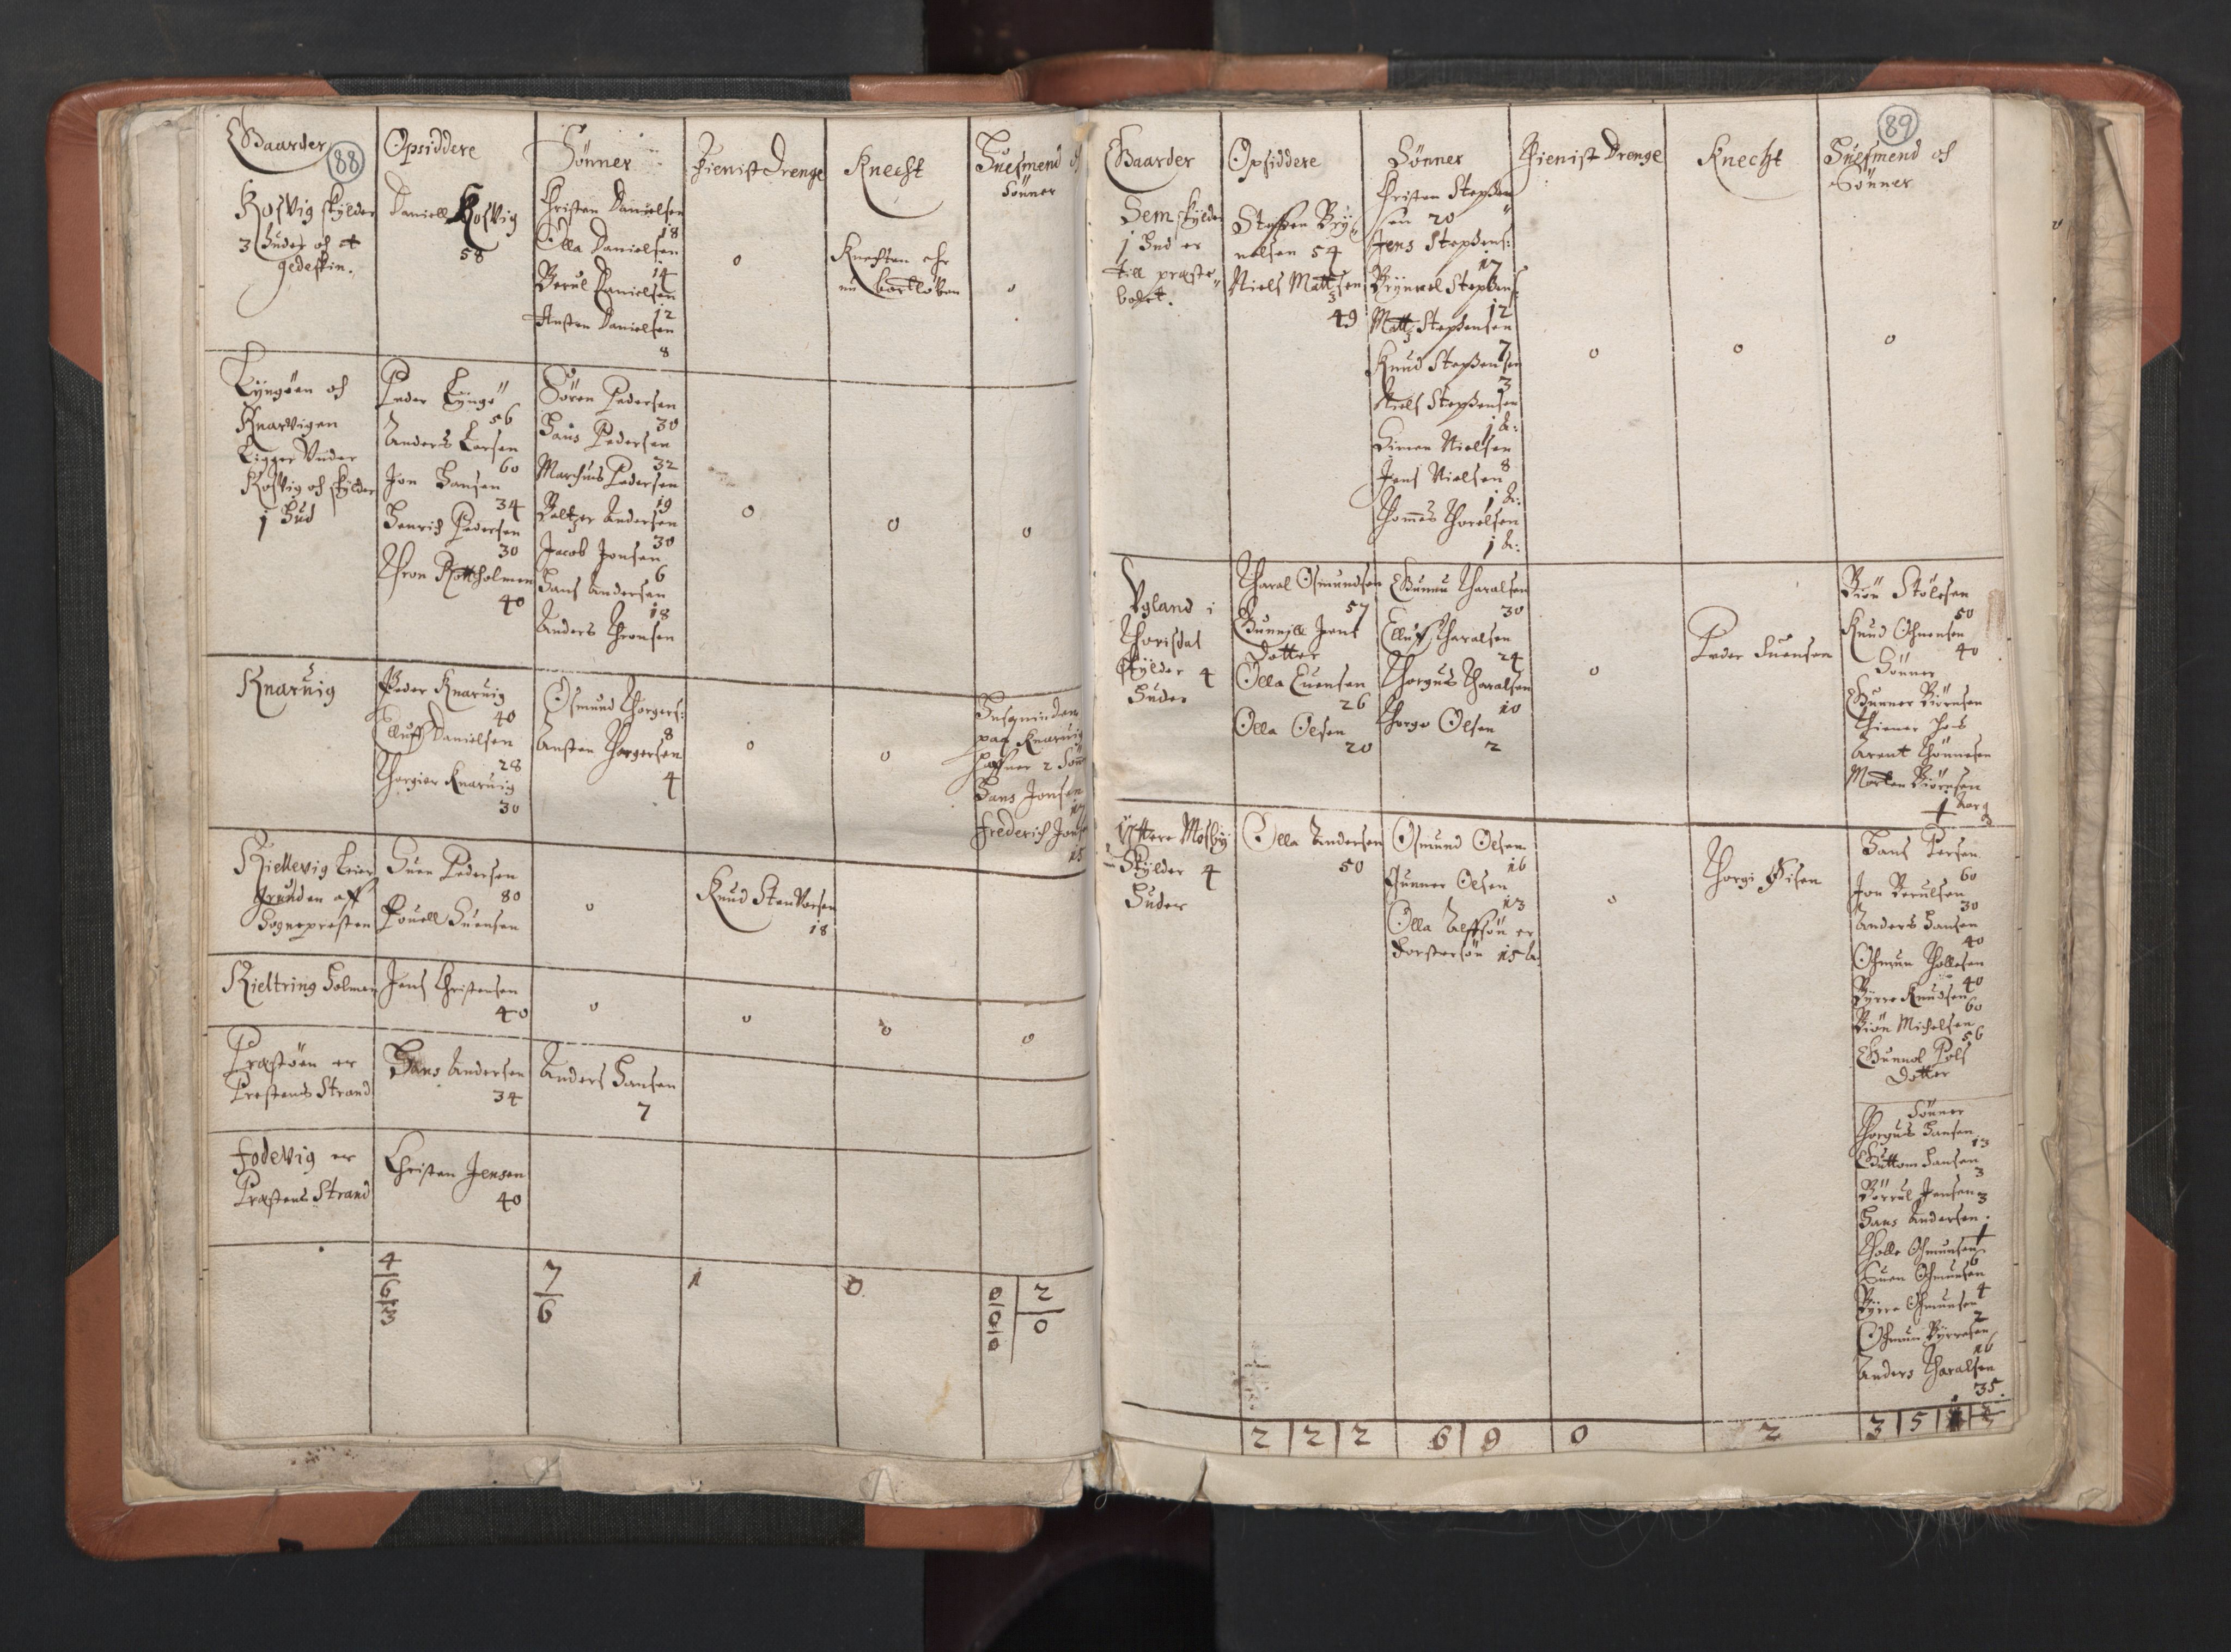 88
Gaarder
Opsiddere
Sønner
Tienist Drenge
Knecht
Huusmend och
Sønner
Kosvig skylder
3 Huder och et
gedeskin.
Daniell Kosvig
58
Christen Danielsen
18
Olla Danielsen
14
Berul Danielsen
12
Austen Danielsen
8
0
Knechten ehr
nu bortløben
0
Lyngøen och
Knarvigen
Ligger Vnder
Kosvig och skylder
1 Hud
Peder Lyngø
56
Anders Larsen
60
Jon Hansen
34
Henrich Pedersen
30
Thron Kottholmen
40
Sören Pedersen
30
Hans Pedersen
32
Marchus Pedersen
19
Baltzer Andersen
30
Jacob Jonsen
6
Hans Andersen
18
Anders Thronsen
0
0
0
Knaruig
Peder Knaruig
40
Elluff Danielsen
28
Thorgier Knaruig
30
Osmund Thorgers:
8
Austen Thorgersen
4
0
0
Husquinden
paa Knaruig
haffuer 2 Sön
Hans Jonsen
17
Frederich Jons
15
Kiellevig Leier
grunden aff
Sognepresten
Suen Pedersen
80
Pouell Suensen
0
Knud Stenvorsen
18
Kieltring Holmen
Jens Christensen
40
0
0
0
0
Præstøen er
Prestens Strand
Hans Andersen
34
Anders Hansen
7
Fodevig er
Præstens Strand
Christen Jensen
40
4
6
3
7
6
1
0
0
0
0
2
0
89
Gaarder
Opsiddere
Sønner
Tienist Drenge
Knecht
Huusmend och
Sønner
Sem skylder
1 Hud er
till præste
bolet.
Steffen Bryn
nelsen 54
Niels Mattzsen
49
Christen Stephen
sen 20
Jens Stephens:
17
Brynnel Stephens:
12
Mattz Stephensen
7
Knud Stephensen
3
Niels Stephensen
1 a:
Simen Nielsen
8
Jens Nielsen
1 a:
Thommes Thorelsen
1 a:
0
0
0
Vgland i
Thorisdal
skylder 4
Huder
Tharal Osmundsen
57
Gunnill Jens
Dotter
Olla Euensen
26
Olla Olsen
20
Gunnu Tharalsen
30
Elluff Tharalsen
24
Thorgus Tharalsen
10
Thorge Olsen
2
0
Peder Suensen
Biön Stölesen
50
Knud Osmensen
40
Sönner
Gunner Biörnsen
Arent Thönnesen
Morten Biörnsen
1 Aar
Yttere Mosby
Skylder 4
Huder
Olla Andersen
50
Osmund Olsen
16
Gunner Olsen
13
Olla Alffsön er
Dorstersön 15 a:
0
Thorgi
Hans Persen
60
Jon Berulsen
30
Anders Hansen
40
Osmun Thollesen
40
Byrre Knudsen
60
Biön Michelsen
56
Gunnol Pols
Dotter
Sönner
Thorgus Hansen
13
Guttom Hansen
3
Börrul Jensen 3
Hans Andersen.
1
Tholle Osmunsen
6
Euen Osmunsen
4
Byrre Osmunsen
2
Osmun Byrresen
16
Anders Tharalsen
35.
2 2 2
6 9
0
2
3 5